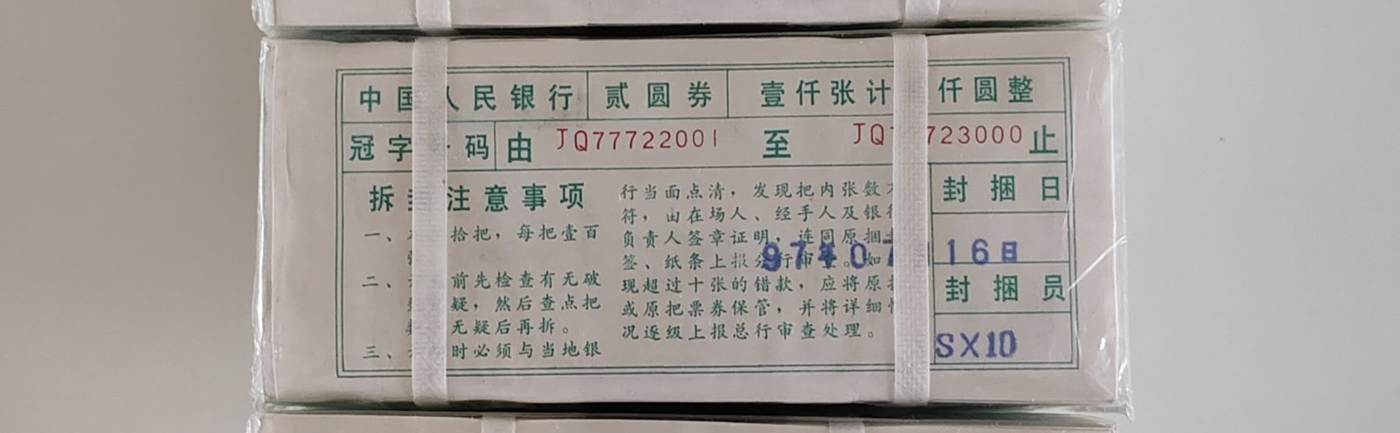 中国人民银行 贰圆券 壹仟张计 仟圆整
冠字 码 由 JQ77722001 至 JQ 723000 止
拆 注意事项
一、 拾把，每把壹百
二、 前先检查有无破
疑，然后查点把
无疑后再拆。
三、 时必须与当地银
行当面点清，发现把内张数
符，由在场人、经手人及银
负责人签章证明，连同原捆
签、纸条上报分行审查。如
现超过十张的错款，应将原
或原把票券保管，并将详细
况逐级上报总行审查处理。
封捆日
97年07 16日
封捆员
SX10